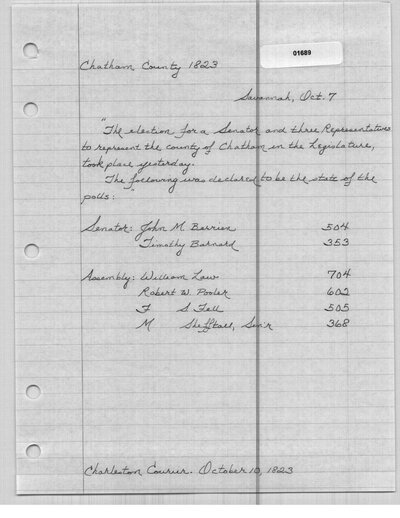 01689
Chatham County 1823
Savannah, Oct. 7
"The election for a Senator and three Representatives
to represent the county of Chatham in the Legislature,
took place yesterday.
The following was declared to be the state of the
polls:"
Senator: John M. Berrien 504
Timothy Barnard 353
Assembly: William Law 704
Robert W. Pooler 602
F S Fell 505
M Sheftall, Sen'r 368
Charleston Courier. October 10, 1823